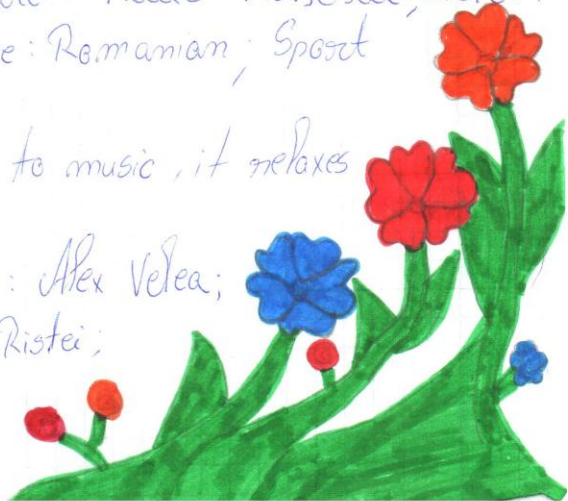 e: Romanian; Sport
to music, it relaxes
: Alex Velea;
Ristei;